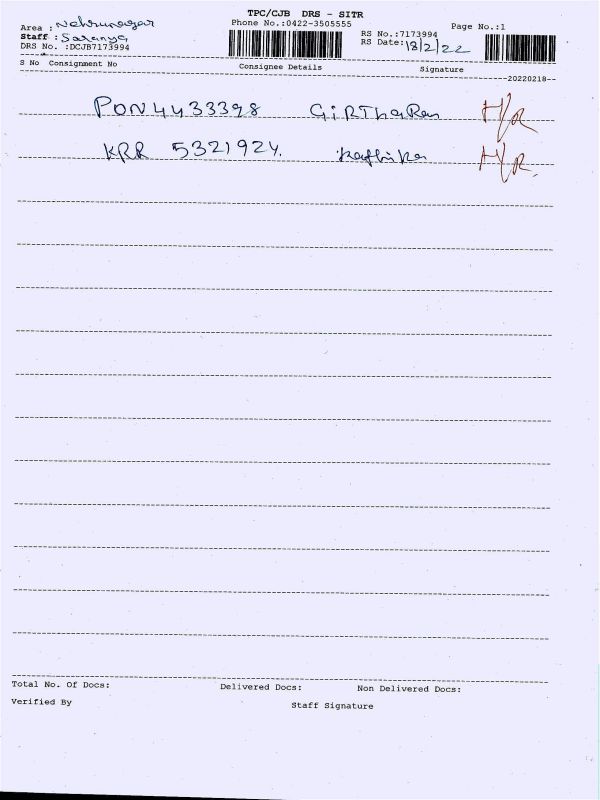 TPC/CJB DRS - SITR
Area : Nehrunagar Phone No.:0422-3505555 RS No.:7173994 Page No.:1
Staff : Saranya RS Date:18/2/22
DRS No. :DCJB7173994
S No Consignment No Consignee Details Signature
20220218
PON4433398 GiRThaRan H/R
KRR 5321924. H/R.
Total No. Of Docs: Delivered Docs: Non Delivered Docs:
Verified By Staff Signature